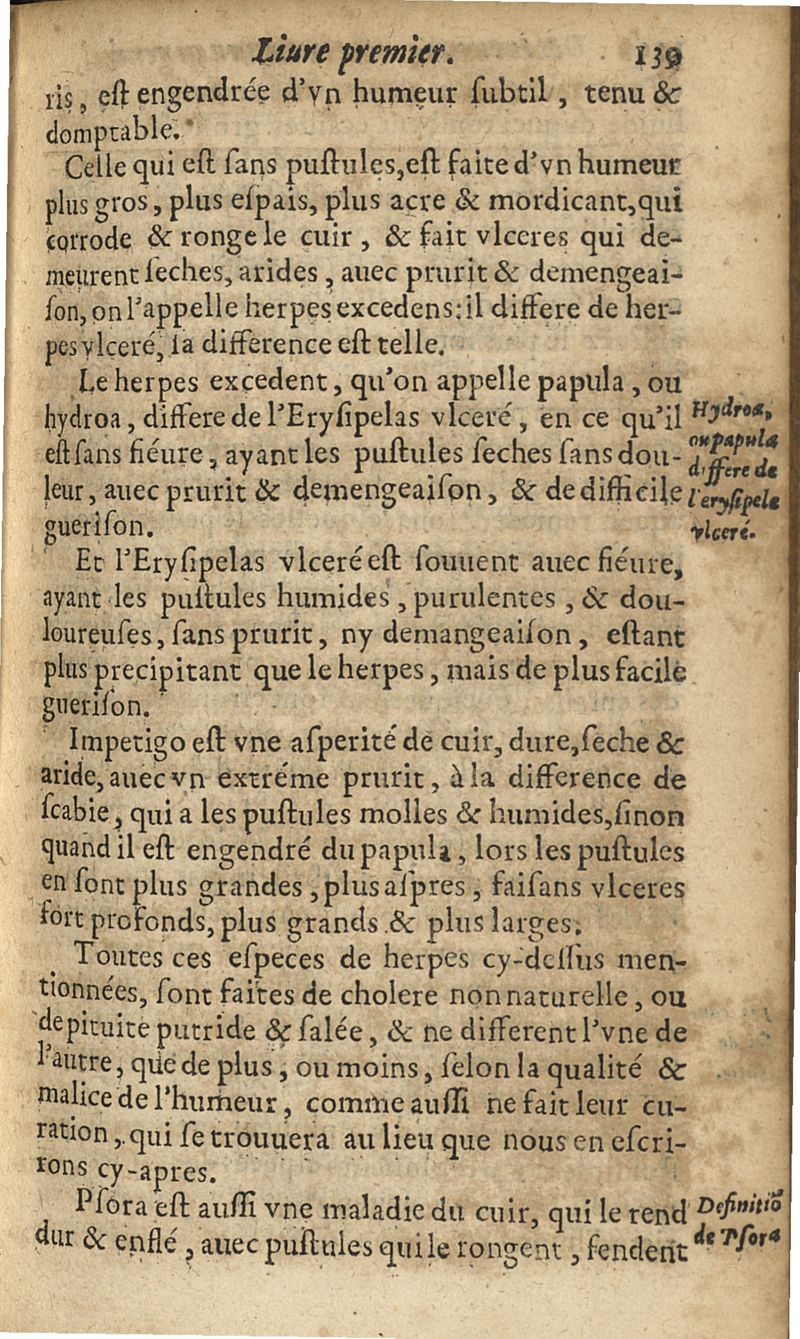 Liure premier. 139
ris, est engendrée d'vn humeur subtil, tenu &
domptable.
Celle qui est sans pustules, est faite d'vn humeur
plus gros, plus espais, plus acre & mordicant, qui
corrode & ronge le cuir, & fait vlceres qui de-
meurent seches, arides, auec prurit & demengeai-
son, on l'appelle herpes excedens: il differe de her-
pes vlceré, la difference est telle.
Le herpes excedent, qu'on appelle papula, ou
hydroa, differe de l'Erysipelas vlceré, en ce qu'il
est sans fiéure, ayant les pustules seches sans dou-
leur, auec prurit & demengeaison, & de difficile
guerison.
Hydroa,
ou papula
differe de
l'erysipele
vlceré.
Et l'Erysipelas vlceré est souuent auec fiéure,
ayant les pustules humides, purulentes, & dou-
loureuses, sans prurit, ny demangeaison, estant
plus precipitant que le herpes, mais de plus facile
guerison.
Impetigo est vne asperité de cuir, dure, seche &
aride, auec vn extréme prurit, à la difference de
scabie, qui a les pustules molles & humides, sinon
quand il est engendré du papula, lors les pustules
en sont plus grandes, plus aspres, faisans vlceres
fort profonds, plus grands & plus larges.
Toutes ces especes de herpes cy-dessus men-
tionnées, sont faites de cholere non naturelle, ou
de pituite putride & salée, & ne different l'vne de
l'autre, que de plus, ou moins, selon la qualité &
malice de l'humeur, comme aussi ne fait leur cu-
ration, qui se trouuera au lieu que nous en escri-
rons cy-apres.
Psora est aussi vne maladie du cuir, qui le rend
dur & enflé, auec pustules qui le rongent, fendent
Definitiõ
de Psora